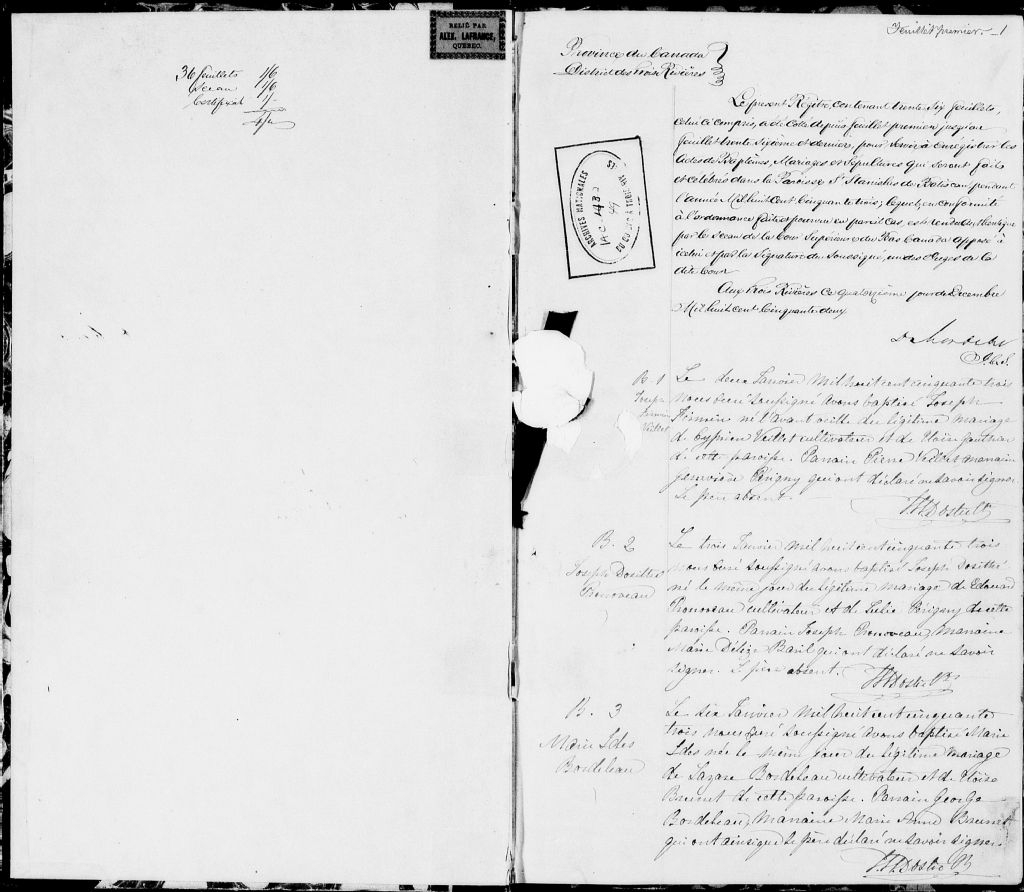 RELIÉ PAR
ALEX. LAFRANCE,
QUÉBEC.
36 feuillets 1/6
Sceau 1/6
Certificat 1/-
Feuillet premier. 1
Province du Canada
District des Trois Rivières
Le present Régître, contenant trente Six feuillets,
celui ci compris, a été coté depuis feuillet premier jusqu'au
feuillet trente Sixième et dernier, pour servir à enrégistrer les
Actes de Baptêmes, Mariages et Sépultures qui seront faits
et célébrés dans la Paroisse St Stanislas de Batiscan pendant
l'année Mil huit Cent Cinquante trois; lequel, en conformité
à l'ordonnance faite et pourvue en pareil cas, est rendu authentique
par le Sceau de la Cour Supérieure du Bas Canada apposé à
icelui et par la Signature du Soussigné, un des Juges de la
dite Cour
Aux Trois Rivières Ce quatorzième jour de Decembre
Mil huit cent Cinquante deux
ARCHIVES NATIONALES
B. 1
Joseph
Firmin
Veillet
Le deux Janvier mil huit cent cinquante trois
nous curé soussigné avons baptisé Joseph
Firmin né l'avant veille du légitime mariage
de Cyprien Veillet cultivateur et de Eloise Gauthier
de cette paroisse. Parrain Pierre Veillet marraine
Geneviève Périgny qui ont déclaré ne savoir signer
Le père absent.
B. 2
Joseph Dosithé
Pronoveau
Le trois Janvier mil huit cent cinquante trois
nous curé soussigné avons baptisé Joseph Dosithé
né le même jour du légitime mariage de Edouard
Pronoveau cultivateur et de Périgny de cette
paroisse. Parrain Joseph Pronoveau, marraine
Marie Délize Baril qui ont déclaré ne savoir
signer. Le père absent.
B. 3
Marie Ides
Bordeleau
Le six Janvier mil huit cent cinquante
trois nous curé soussigné avons baptisé Marie
Ides née le même jour du légitime mariage
de Lazare Bordeleau cultivateur et de Eloise
Brunet de cette paroisse. Parrain George
Bordeleau, marraine Marie Anne Brunet
qui ont ainsi que le père déclaré ne savoir signer.